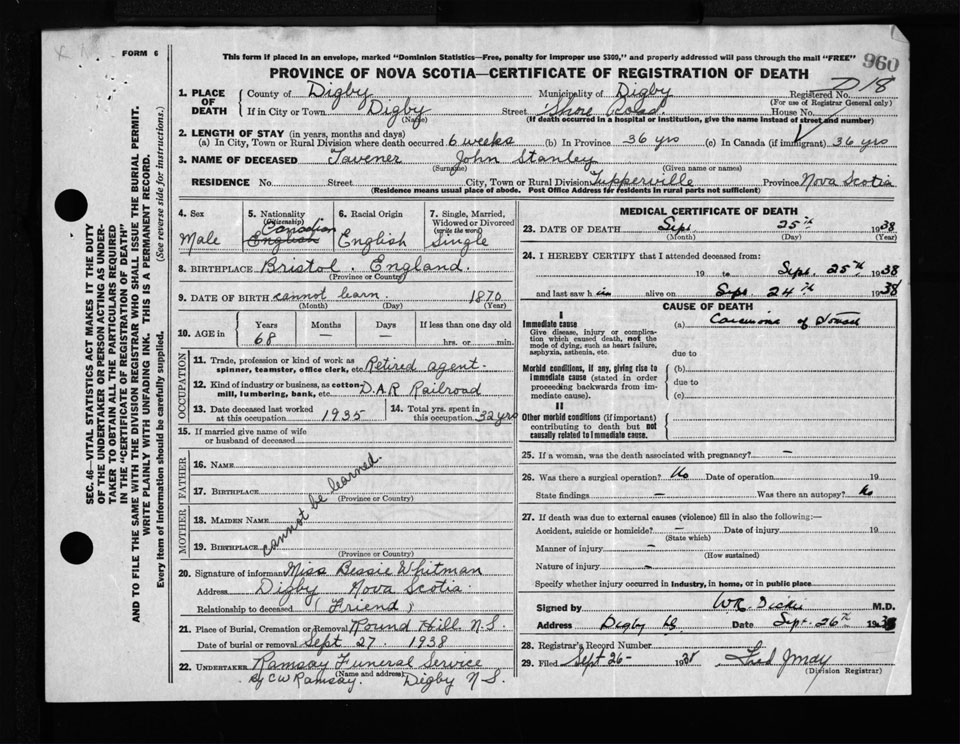 FORM 6
This form if placed in an envelope, marked "Dominion Statistics—Free, penalty for improper use $300," and properly addressed will pass through the mail "FREE"
960
PROVINCE OF NOVA SCOTIA—CERTIFICATE OF REGISTRATION OF DEATH
D18
1. PLACE OF DEATH County of Digby Municipality of Digby Registered No.
(For use of Registrar General only)
If in City or Town Digby Street Shore Road House No.
(Name) (If death occurred in a hospital or institution, give the name instead of street and number)
2. LENGTH OF STAY (in years, months and days)
(a) In City, Town or Rural Division where death occurred 6 weeks (b) In Province 36 yrs (c) In Canada (if immigrant) 36 yrs
3. NAME OF DECEASED Tavener John Stanley
(Surname) (Given name or names)
RESIDENCE No. Street City, Town or Rural Division Tupperville Province Nova Scotia
(Residence means usual place of abode. Post Office Address for residents in rural parts not sufficient)
4. Sex
Male
5. Nationality
(Citizenship)
Canadian
English
6. Racial Origin
English
7. Single, Married, Widowed or Divorced
(write the word)
Single
8. BIRTHPLACE Bristol. England.
(Province or Country)
9. DATE OF BIRTH cannot learn 1870
(Month) (Day) (Year)
10. AGE in Years Months Days If less than one day old
68 — — hrs. or min.
OCCUPATION
11. Trade, profession or kind of work as spinner, teamster, office clerk, etc. Retired agent.
12. Kind of industry or business, as cotton-mill, lumbering, bank, etc. D.A.R Railroad
13. Date deceased last worked at this occupation 1935
14. Total yrs. spent in this occupation 32 yrs
15. If married give name of wife or husband of deceased
FATHER
16. NAME
17. BIRTHPLACE
(Province or Country)
cannot be learned.
MOTHER
18. MAIDEN NAME
19. BIRTHPLACE
(Province or Country)
20. Signature of informant Miss Bessie Whitman
Address Digby Nova Scotia
Relationship to deceased (Friend)
21. Place of Burial, Cremation or Removal Round Hill N.S.
Date of burial or removal Sept 27. 1938
22. UNDERTAKER Ramsay Funeral Service
(Name and address)
By C W Ramsay. Digby N S.
MEDICAL CERTIFICATE OF DEATH
23. DATE OF DEATH Sept. 25th 1938
(Month) (Day) (Year)
24. I HEREBY CERTIFY that I attended deceased from:
19 to Sept. 25th 1938
and last saw him alive on Sept. 24th 1938
CAUSE OF DEATH
I
Immediate cause
Give disease, injury or complication which caused death, not the mode of dying, such as heart failure, asphyxia, asthenia, etc.
(a) Carcinoma of
due to
Morbid conditions, if any, giving rise to immediate cause (stated in order proceeding backwards from immediate cause).
(b)
due to
(c)
II
Other morbid conditions (if important) contributing to death but not causally related to immediate cause.
25. If a woman, was the death associated with pregnancy? —
26. Was there a surgical operation? No Date of operation 19
State findings — Was there an autopsy? No
27. If death was due to external causes (violence) fill in also the following:—
Accident, suicide or homicide? — Date of injury 19
(State which)
Manner of injury —
(How sustained)
Nature of injury —
Specify whether injury occurred in industry, in home, or in public place
Signed by W.R. Dickie M.D.
Address Digby Date Sept. 26th 1938
28. Registrar's Record Number
29. Filed Sept 26- 1938 Fred J May
(Division Registrar)
SEC. 46—VITAL STATISTICS ACT MAKES IT THE DUTY
OF THE UNDERTAKER OR PERSON ACTING AS UNDER-
TAKER TO OBTAIN ALL THE PARTICULARS REQUIRED
IN THE "CERTIFICATE OF REGISTRATION OF DEATH"
AND TO FILE THE SAME WITH THE DIVISION REGISTRAR WHO SHALL ISSUE THE BURIAL PERMIT.
WRITE PLAINLY WITH UNFADING INK. THIS IS A PERMANENT RECORD.
Every item of Information should be carefully supplied. (See reverse side for instructions.)